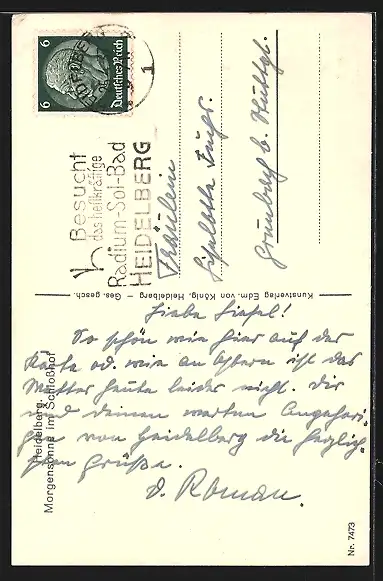 6 Deutsches Reich 6
HEIDELBERG
1
Besucht
das heilkräftige
Radium-Sol-Bad
HEIDELBERG
Fräulein
Liselotte
b.
Kunstverlag Edm. von König, Heidelberg — Ges. gesch.
Liebe Liesel!
So schön wie hier auf der
Karte od. wie an Ostern ist das
Wetter heute leider nicht. Dir
und deinen werten Angehöri-
gen von Heidelberg die herzlich-
sten Grüße.
d. Roman.
Heidelberg.
Morgensonne im Schloßhof
Nr. 7473